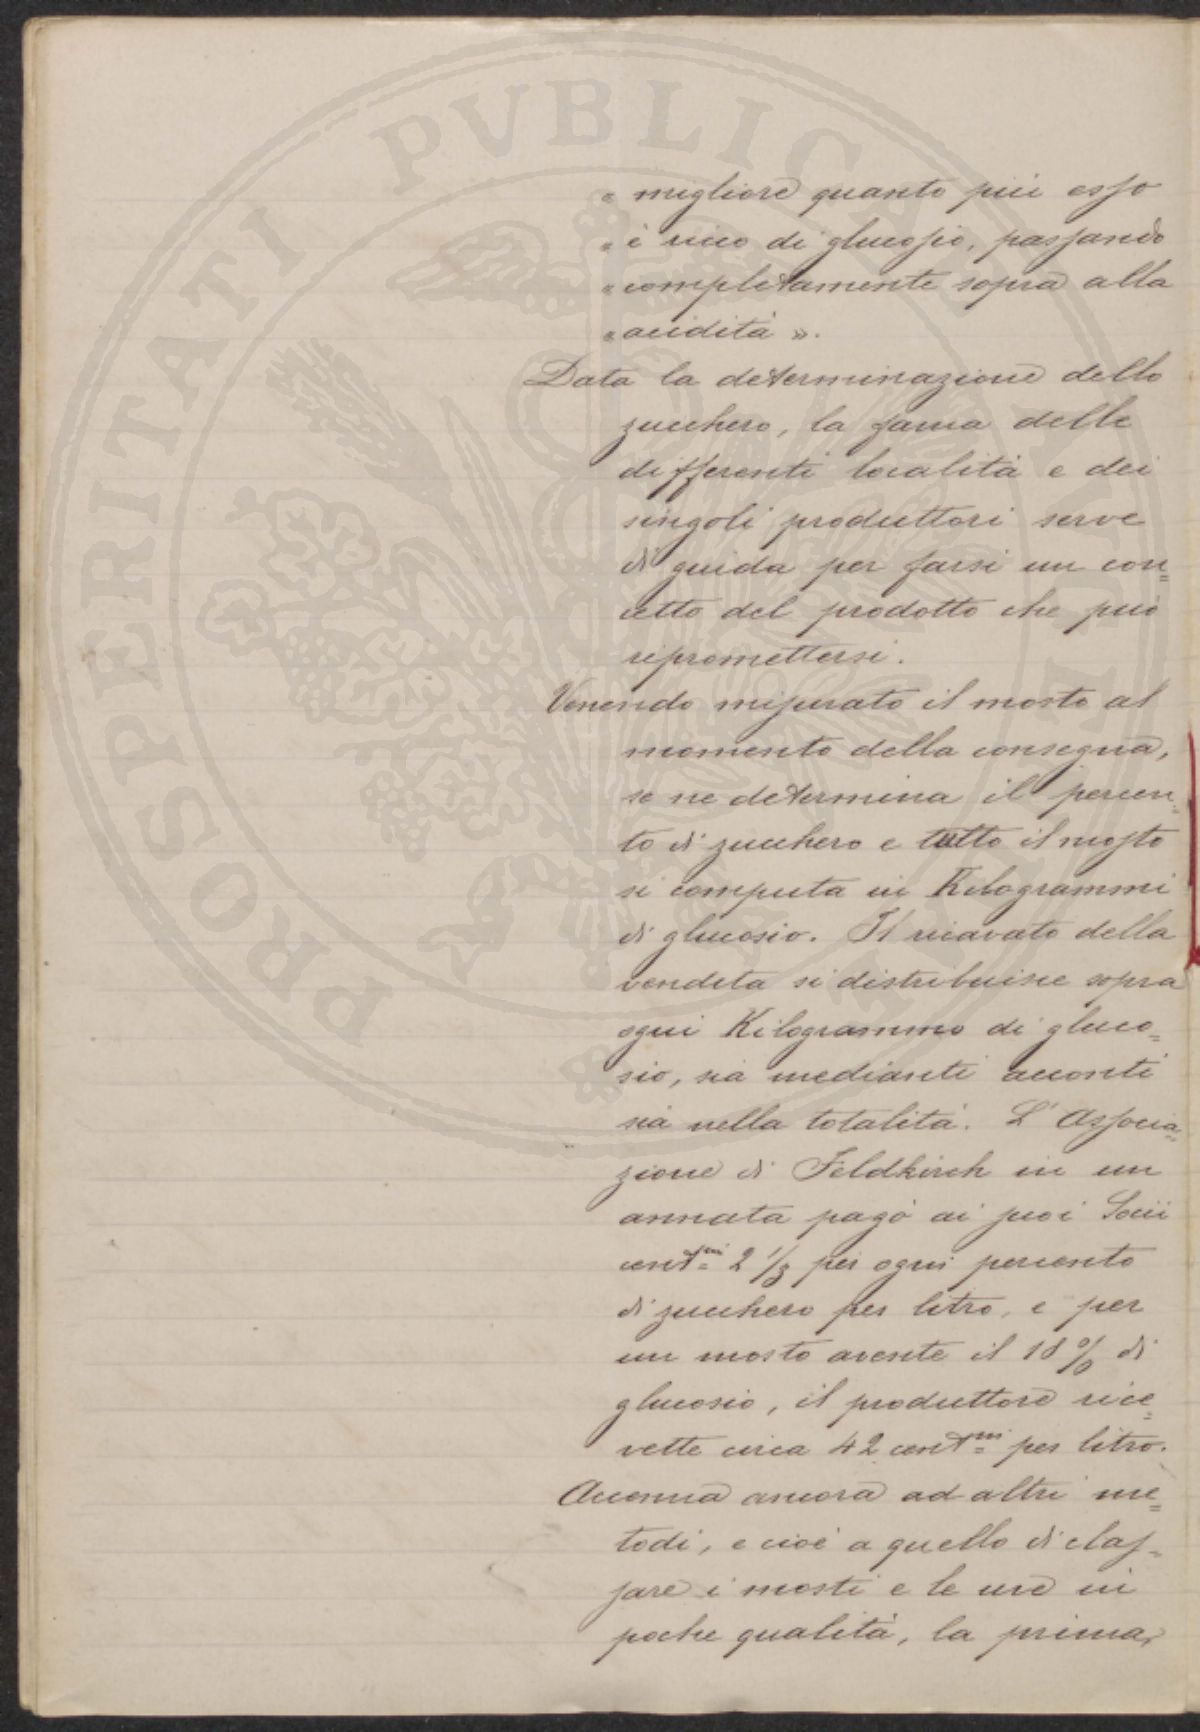 « migliore quanto più esso
« è ricco di glucosio, passando
« completamente sopra alla
« acidità ».
Data la determinazione dello
zucchero, la fama delle
differenti località e dei
singoli produttori serve
di guida per farsi un con=
cetto del prodotto che può
ripromettersi.
Venendo misurato il mosto al
momento della consegna,
se ne determina il percen=
to di zucchero e tutto il mosto
si computa in Kilogrammi
di glucosio. Il ricavato della
vendita si distribuisce sopra
ogni Kilogrammo di gluco=
sio, sia mediante acconti
sia nella totalità. L'Associa=
zione di Feldkirch in un
annata pagò ai suoi Socii
centmi 2 1/3 per ogni percento
di zucchero per litro, e per
un mosto avente il 18 % di
glucosio, il produttore rice=
vette circa 42 centmi per litro.
Accenna ancora ad altri me=
todi, e cioè a quello di clas=
sare i mosti e le uve in
poche qualità, la prima,
PROSPERITATI PVBLICAE